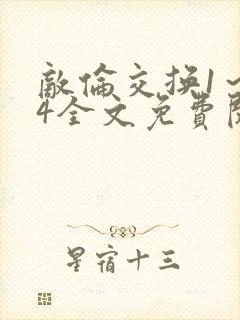 敵倫交換1～
4全文免費閱
星宿十三